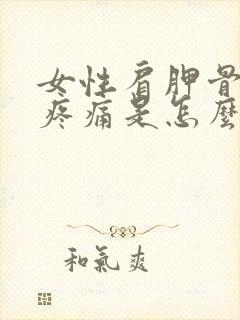 女性肩胛骨
疼痛是怎麼
和氣爽